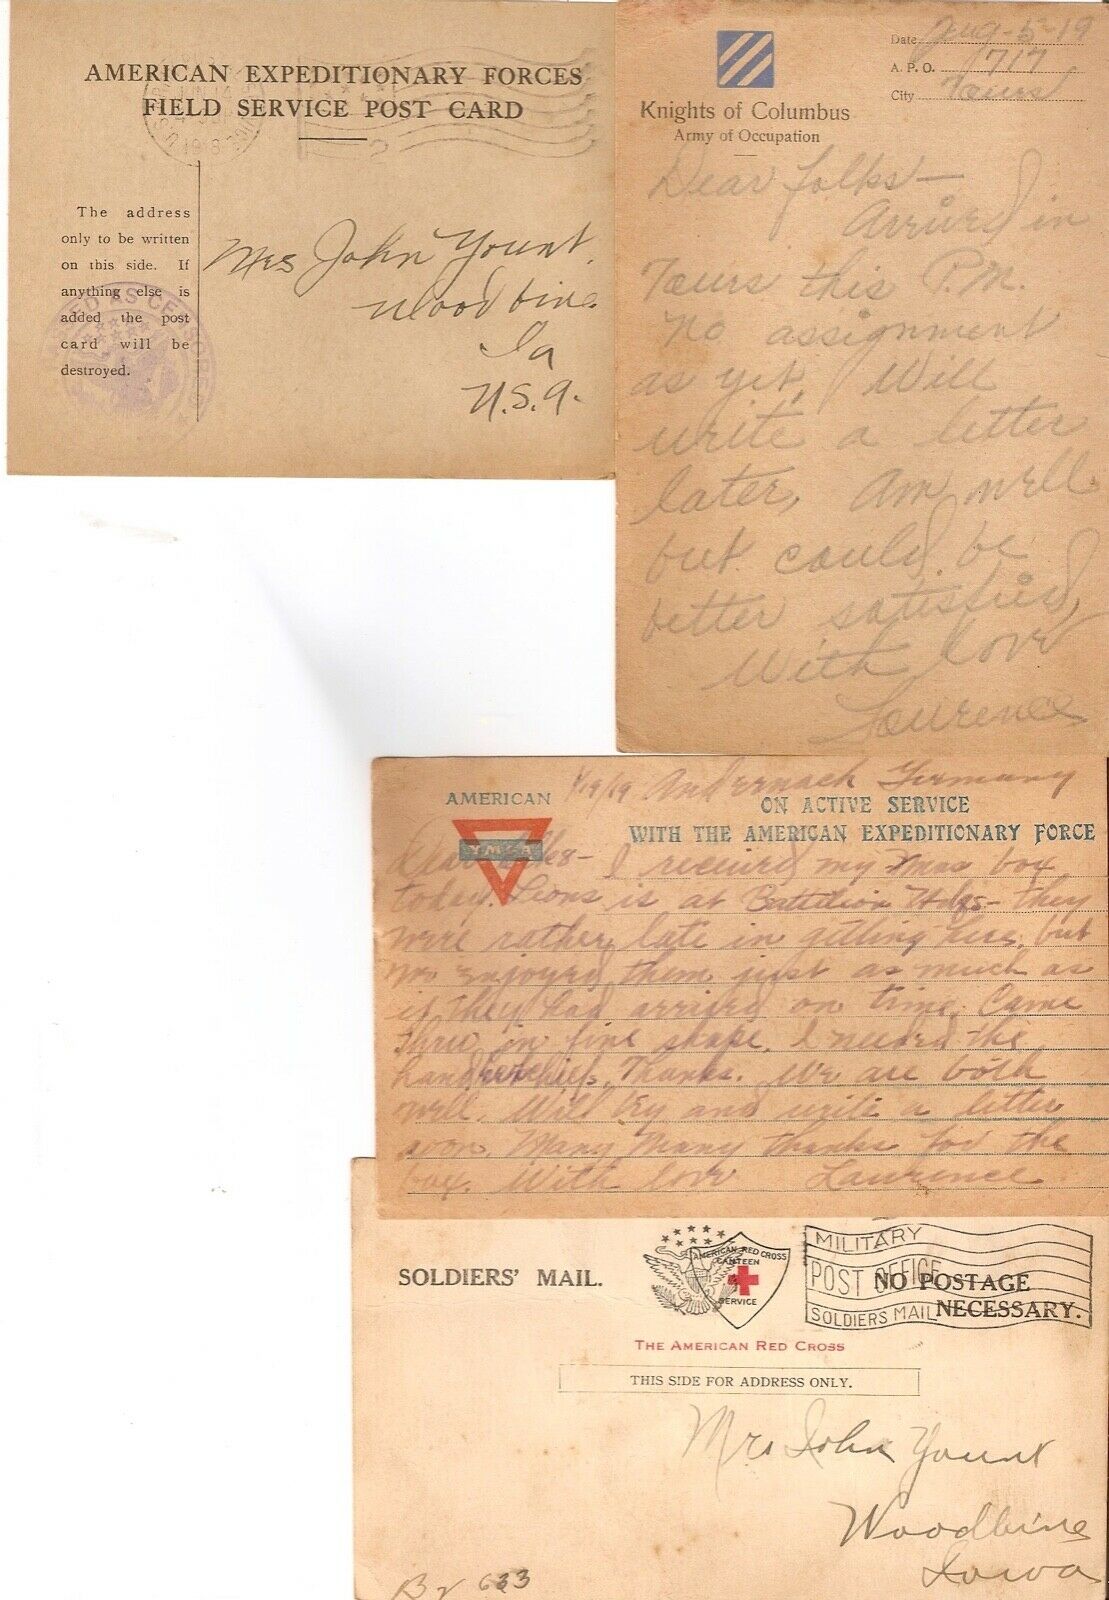 AMERICAN EXPEDITIONARY FORCES
FIELD SERVICE POST CARD
The address
only to be written
on this side. If
anything else is
added the post
card will be
destroyed.
Mrs John Yount.
Woodbine
Ia
U.S.A.
Knights of Columbus
Army of Occupation
Date Aug-5-19
A. P. O. 717
City Tours
Dear folks—
Arrived in
Tours this P.M.
No assignment
as yet. Will
write a letter
later, Am well
but could be
better satisfied,
With love
Laurence
AMERICAN
YMCA
ON ACTIVE SERVICE
WITH THE AMERICAN EXPEDITIONARY FORCE
1/19/19 Andernach Germany
Dear folks- I received my Xmas box
today. Leons is at Battalion Hdqs- they
were rather late in getting here, but
we enjoyed them just as much as
if they had arrived on time. Came
thru in fine shape. I needed the
handkerchiefs, Thanks. We are both
well. Will try and write a letter
soon. Many Many thanks for the
box. With love Laurence
SOLDIERS' MAIL.
AMERICAN RED CROSS
CANTEEN
SERVICE
MILITARY
POST OFFICE
SOLDIERS MAIL
NO POSTAGE
NECESSARY.
THE AMERICAN RED CROSS
THIS SIDE FOR ADDRESS ONLY.
Mrs John Yount
Woodbine
Iowa
633